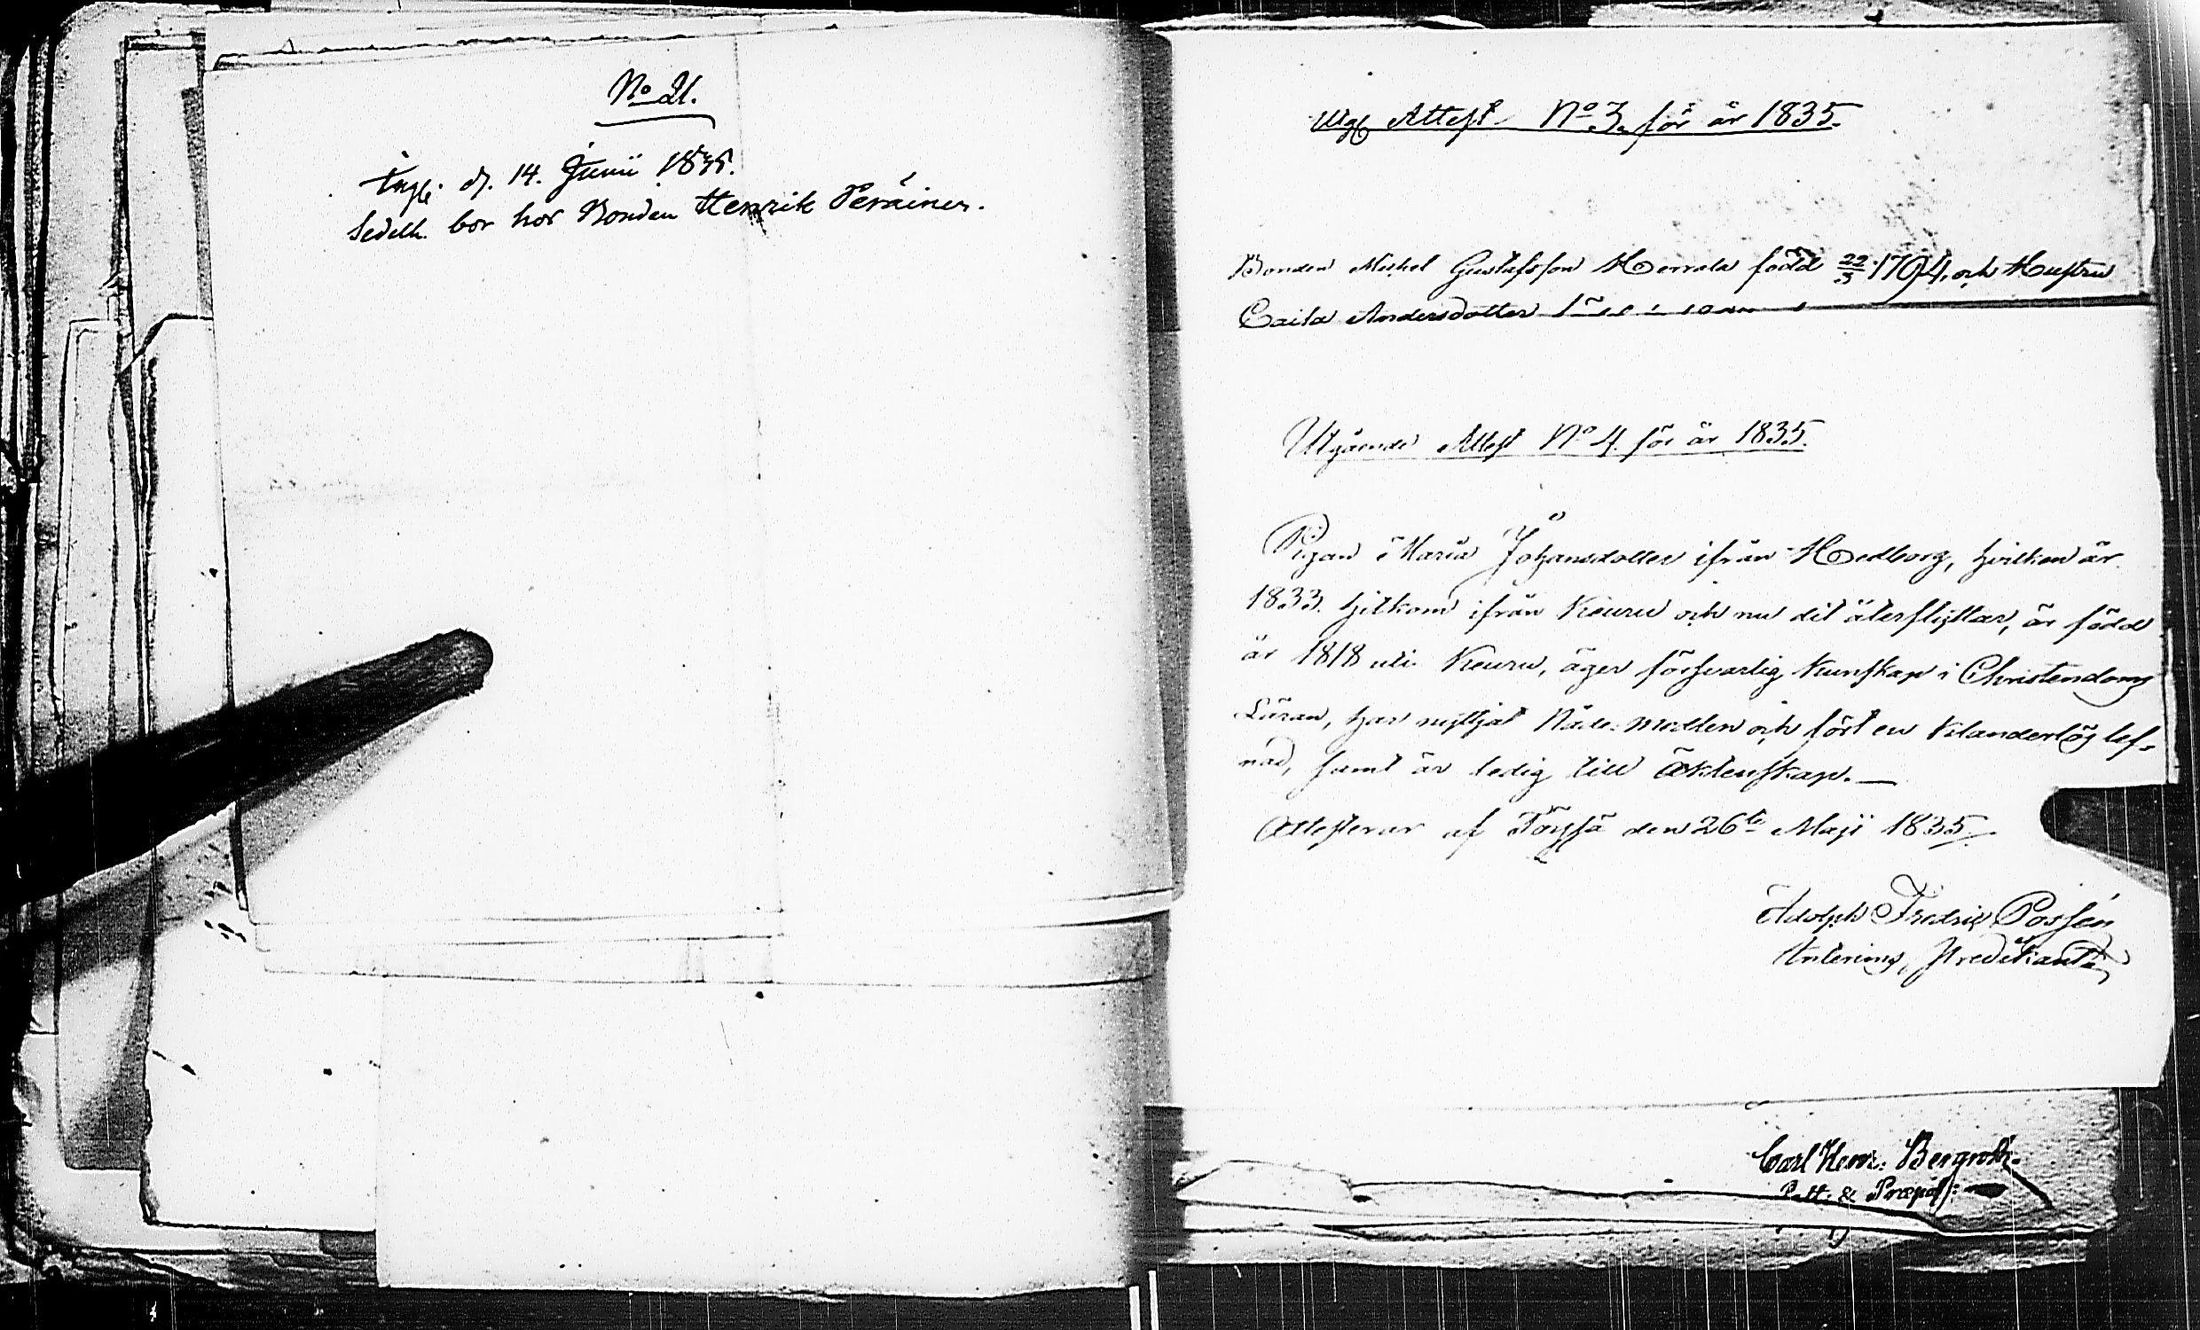 No 21.
Ingf. d. 14. Junii 1835.
Sedelh. bor hos Bonden Henrik Peräinen.
Utgf Attest No 3. för år 1835.
Bonden Michel Gustafsson Herrala född 22/3 1794, och Hustru
Caisa Andersdotter
Utgående Attest No 4. för år 1835.
Pigan Maria Johansdotter ifrån Hedborg, hvilken år
1833. hitkom ifrån Keuru och nu dit återflyttar, är född
år 1818 uti Keuru, äger försvarlig kunskap i Christendoms
Läran, har nyttjat Nåde-medlen och fört en klanderlös lef-
nad, samt är ledig till äktenskap.—
Attesterar af Töysä den 26te Maji 1835.
Adolph Fredric Possén
Interims Predikant.
Carl Henr. Bergroth.
Past: & Præpos: